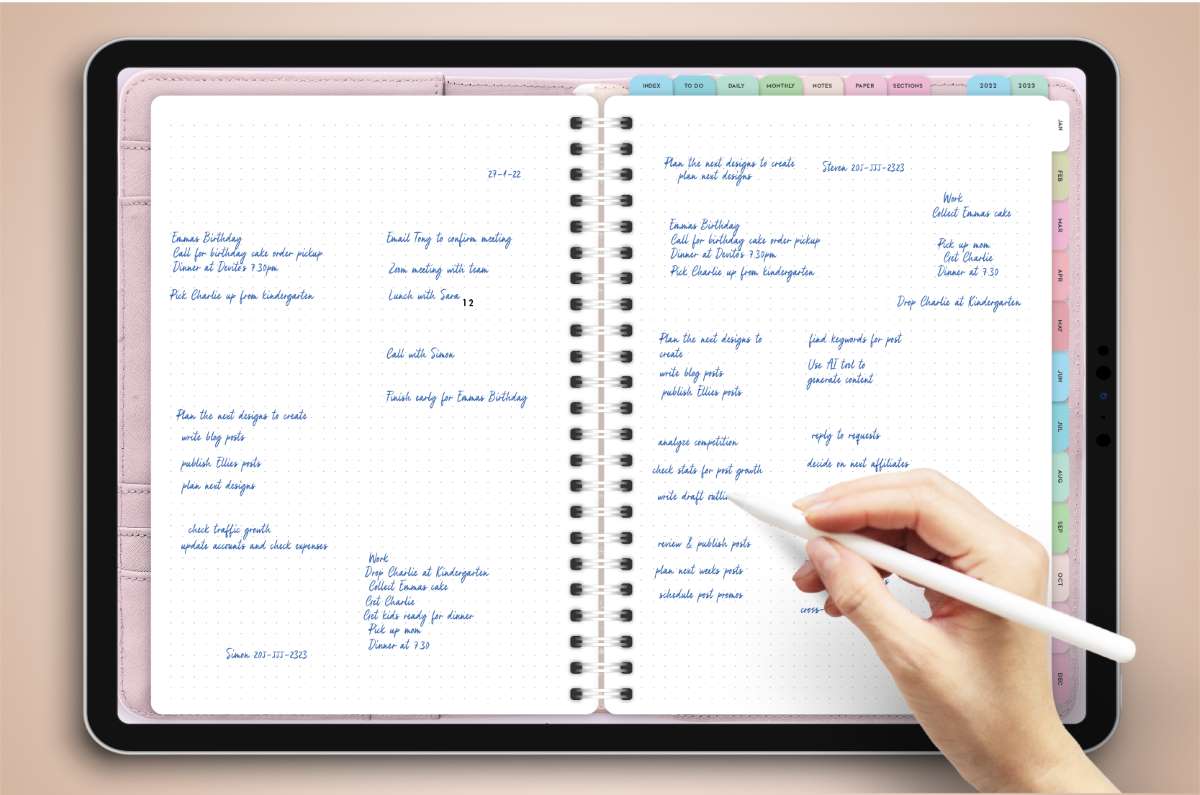 INDEX
TO DO
DAILY
MONTHLY
NOTES
PAPER
SECTIONS
2022
2023
27-1-22
Emmas Birthday
Call for birthday cake order pickup
Dinner at Devito's 7.30pm
Pick Charlie up from kindergarten
Email Tony to confirm meeting
Zoom meeting with team
Lunch with Sara
12
Call with Simon
Finish early for Emmas Birthday
Plan the next designs to create
write blog posts
publish Ellies posts
plan next designs
check traffic growth
update accounts and check expenses
Work
Drop Charlie at Kindergarten
Collect Emmas cake
Get Charlie
Get kids ready for dinner
Pick up mom
Dinner at 7.30
Simon 205-555-2323
Plan the next designs to create
plan next designs
Steven 205-555-2323
Work
Collect Emmas cake
Emmas Birthday
Call for birthday cake order pickup
Dinner at Devito's 7.30pm
Pick Charlie up from kindergarten
Pick up mom
Get Charlie
Dinner at 7.30
Drop Charlie at Kindergarten
Plan the next designs to
create
write blog posts
publish Ellies posts
find keywords for post
Use AI tool to
generate content
analyze competition
check stats for post growth
write draft
reply to requests
decide on next affiliates
review & publish posts
plan next weeks posts
schedule post promos
cross-
JAN
FEB
MAR
APR
MAY
JUN
JUL
AUG
SEP
OCT
DEC